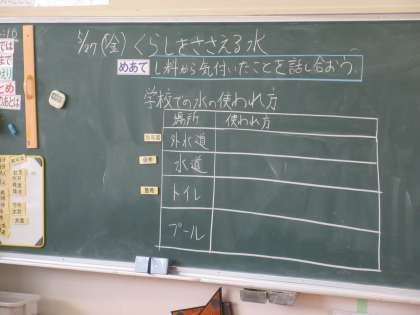 5/27(金) くらしをささえる水
めあて し料から気付いたことを話し合おう。
学校での水の使われ方
場所 使われ方
外水道
水道
トイレ
プール